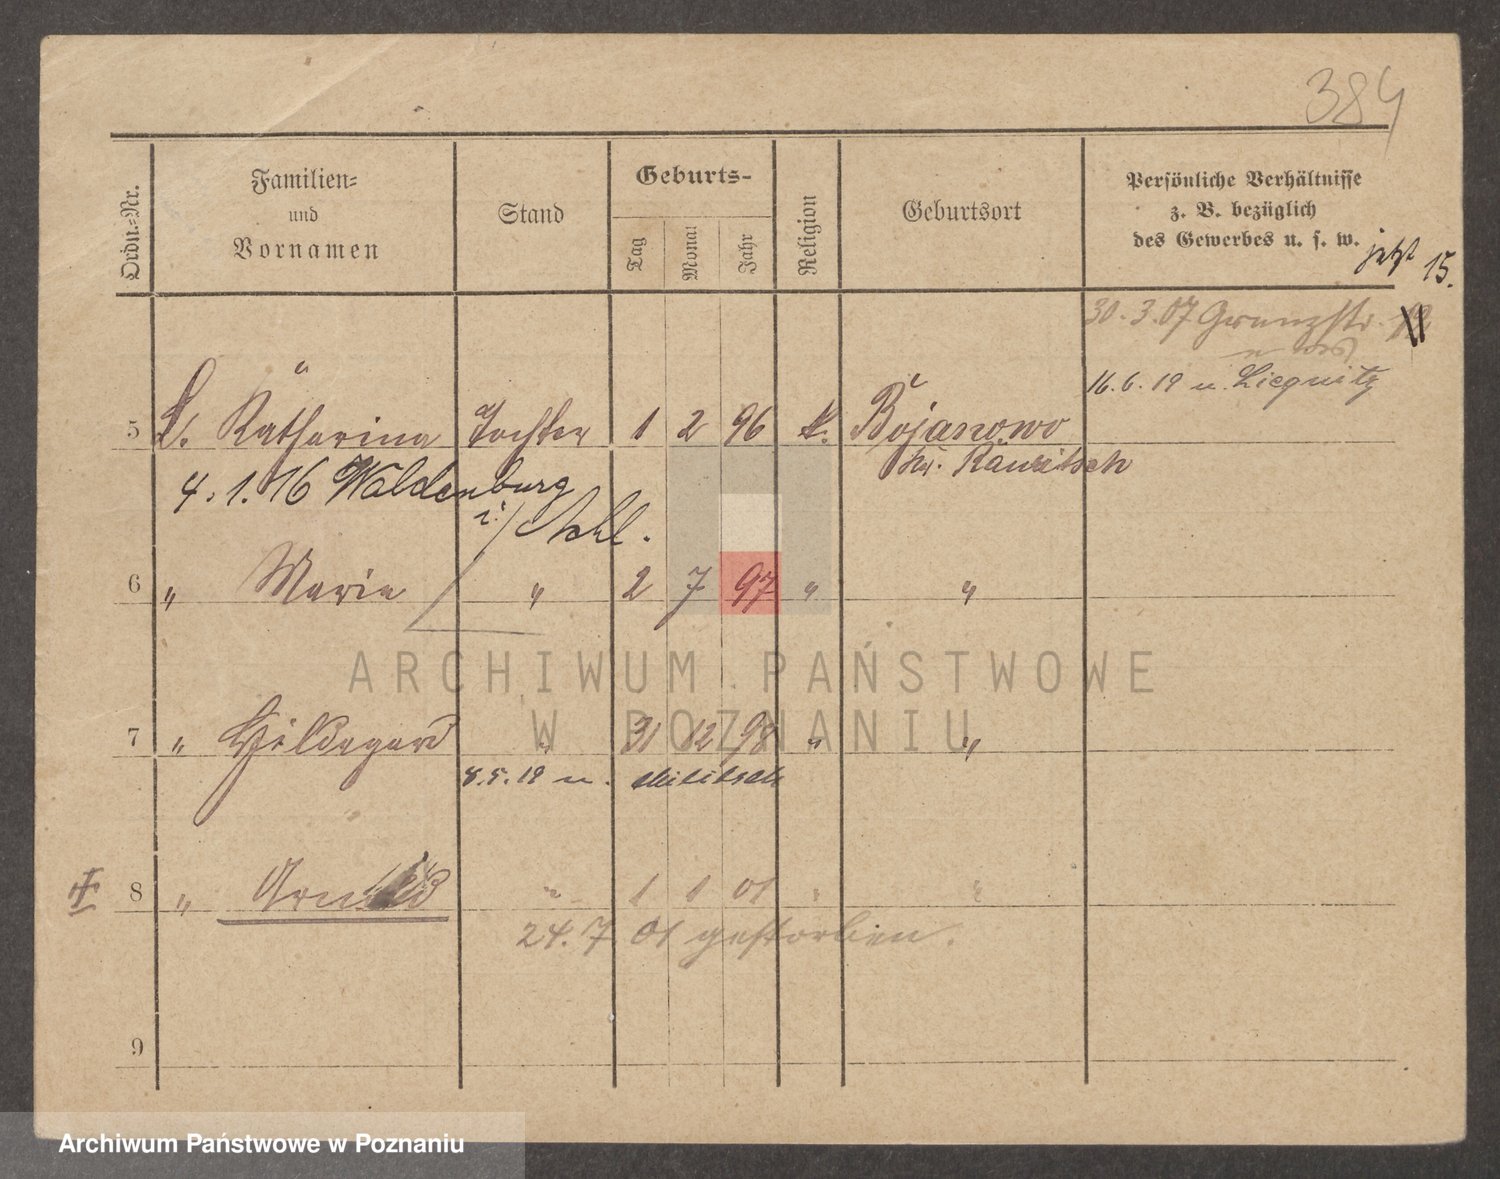 384
Ordn.=Nr.
Familien=
und
Vornamen
Stand
Geburts-
Tag
Monat
Jahr
Religion
Geburtsort
Persönliche Verhältnisse
z. B. bezüglich
des Gewerbes u. s. w.
jetzt 15.
30.3.07 Grenzstr.
16.6.19 n. Liegnitz
5 L. Katharina Tochter 1 2 96 k. Bojanowo
Kr. Rawitsch
4.1.16 Waldenburg
i/Schl.
6 " Maria " 2 7 97 " "
ARCHIWUM PAŃSTWOWE
W POZNANIU
7 " Hildegard " 31 12 98 " "
8.5.19 n. Militsch
8 " Arnold " 1 1 01 " "
24.7 01 gestorben.
9
Archiwum Państwowe w Poznaniu